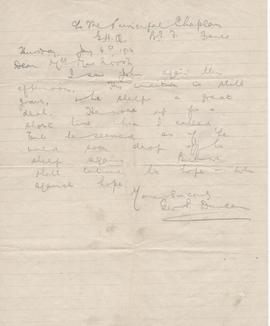 c/o The Principal Chaplain
G.H.Q. B.E.F. France
Thursday Jany
Dear Mrs
I saw John again this
afternoon. His condition is still
grave, he sleeps a great
deal. He woke up for a
short time when I called
but he seemed as if he
would soon drop off to
sleep again.
still continue to hope
against hope.
Yours sincerely
Geo. S. Duncan